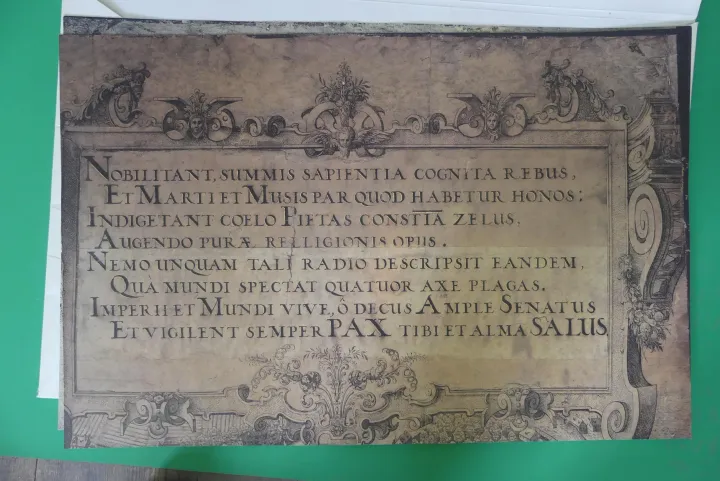 NOBILITANT, SUMMIS SAPIENTIA COGNITA REBUS,
ET MARTI ET MUSIS PAR QUOD HABETUR HONOS:
INDIGETANT COELO PIETAS CONSTĪĀ ZELUS,
AUGENDO PURÆ RELLIGIONIS OPUS.
NEMO UNQUAM TALI RADIO DESCRIPSIT EANDEM,
QUA MUNDI SPECTAT QUATUOR AXE PLAGAS.
IMPERII ET MUNDI VIVE, Ô DECUS AMPLE SENATUS
ET VIGILENT SEMPER PAX TIBI ET ALMA SALUS.